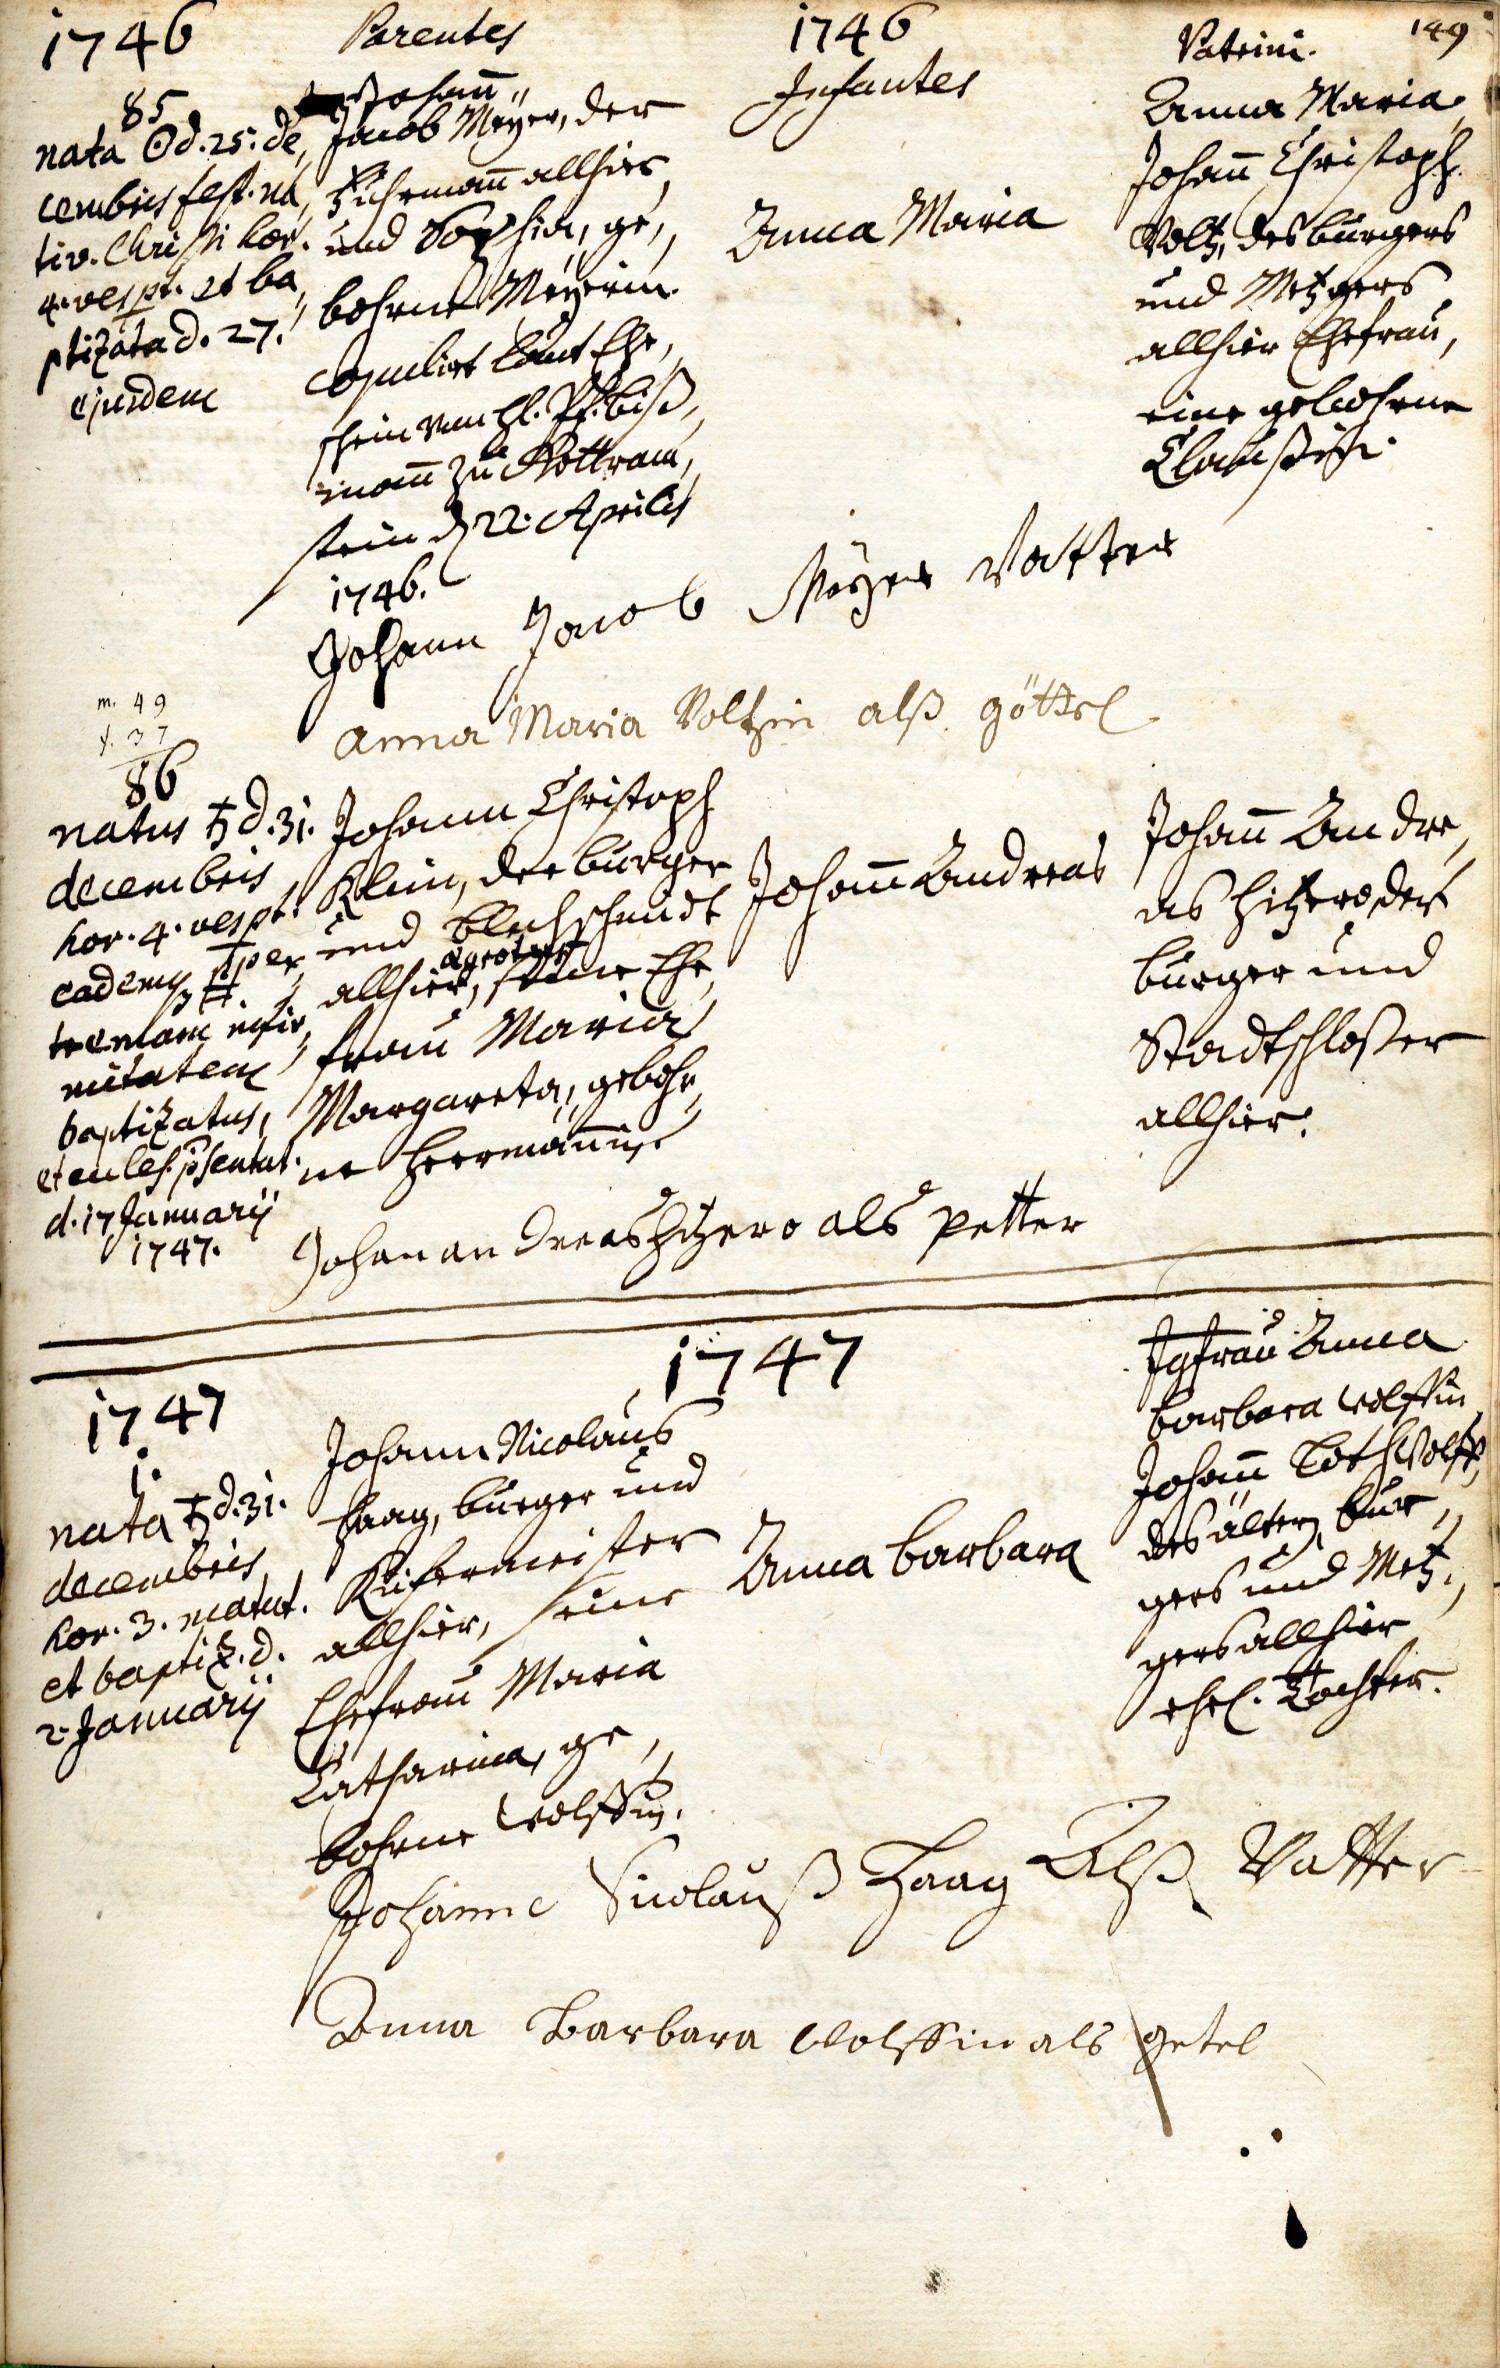 1746
Parentes
1746
Infantes
Patrini.
149
85
nata ☉ d. 25. de„
cembris fest. na„
tiv. Christi hor.
4. vespt. et ba„
ptizata d. 27.
ejusdem
Johañ„
Jacob Meÿer, der
Fuhrmañ allhier,
und Sophia, ge„
bohrne Meÿerin.
copulirt laut Ehe„
schein von Hl. Pf. Biß„
mañ zu Rottram„
stein d. 22. Aprilis
1746.
Anna Maria
Anna Maria,
Johañ Christoph
Voltz, des burgers
und Metzgers
allhier Ehefrau,
eine gebohrne
Johann Jacob Meÿer Vatter
Anna Maria Voltzin alß göttel
m. 49
f. 37
86
natus ♄ d. 31.
decembris
hor. 4. vespt.
eadem
tremam infir„
mitatem
baptizatus,
et eccles. psentat.
d. 17 Januarÿ
1747.
Johann Christoph
Klein, der burger
und blechschmidt
allhier, seine Ehe„
frau Maria
Margareta, gebohr„
ne Herrmännin.
Johañ Andreas
Johañ Andre„
as Hitzero, der
burger und
Stadtschloßer
allhier.
Johan andreas Hitzero als petter
1747
1747
1.
nata ♄ d. 31.
decembris
hor. 3. matut.
et baptiz. d.
2. Januarÿ
Johann Nicolaus
Haag, burger und
Küfermeister
allhier, seine
Ehefrau Maria
Catharina, ge„
bohrne Wolffin.
Anna Barbara
Jgfrau Anna
Barbara Wolffin,
Johañ Loth Wolff,
des ältern, bur„
gers und Metz„
gers allhier
ehel. Tochter.
Johanne Nicolauß Haag Alß Vatter
Anna Barbara Wolffin als getel